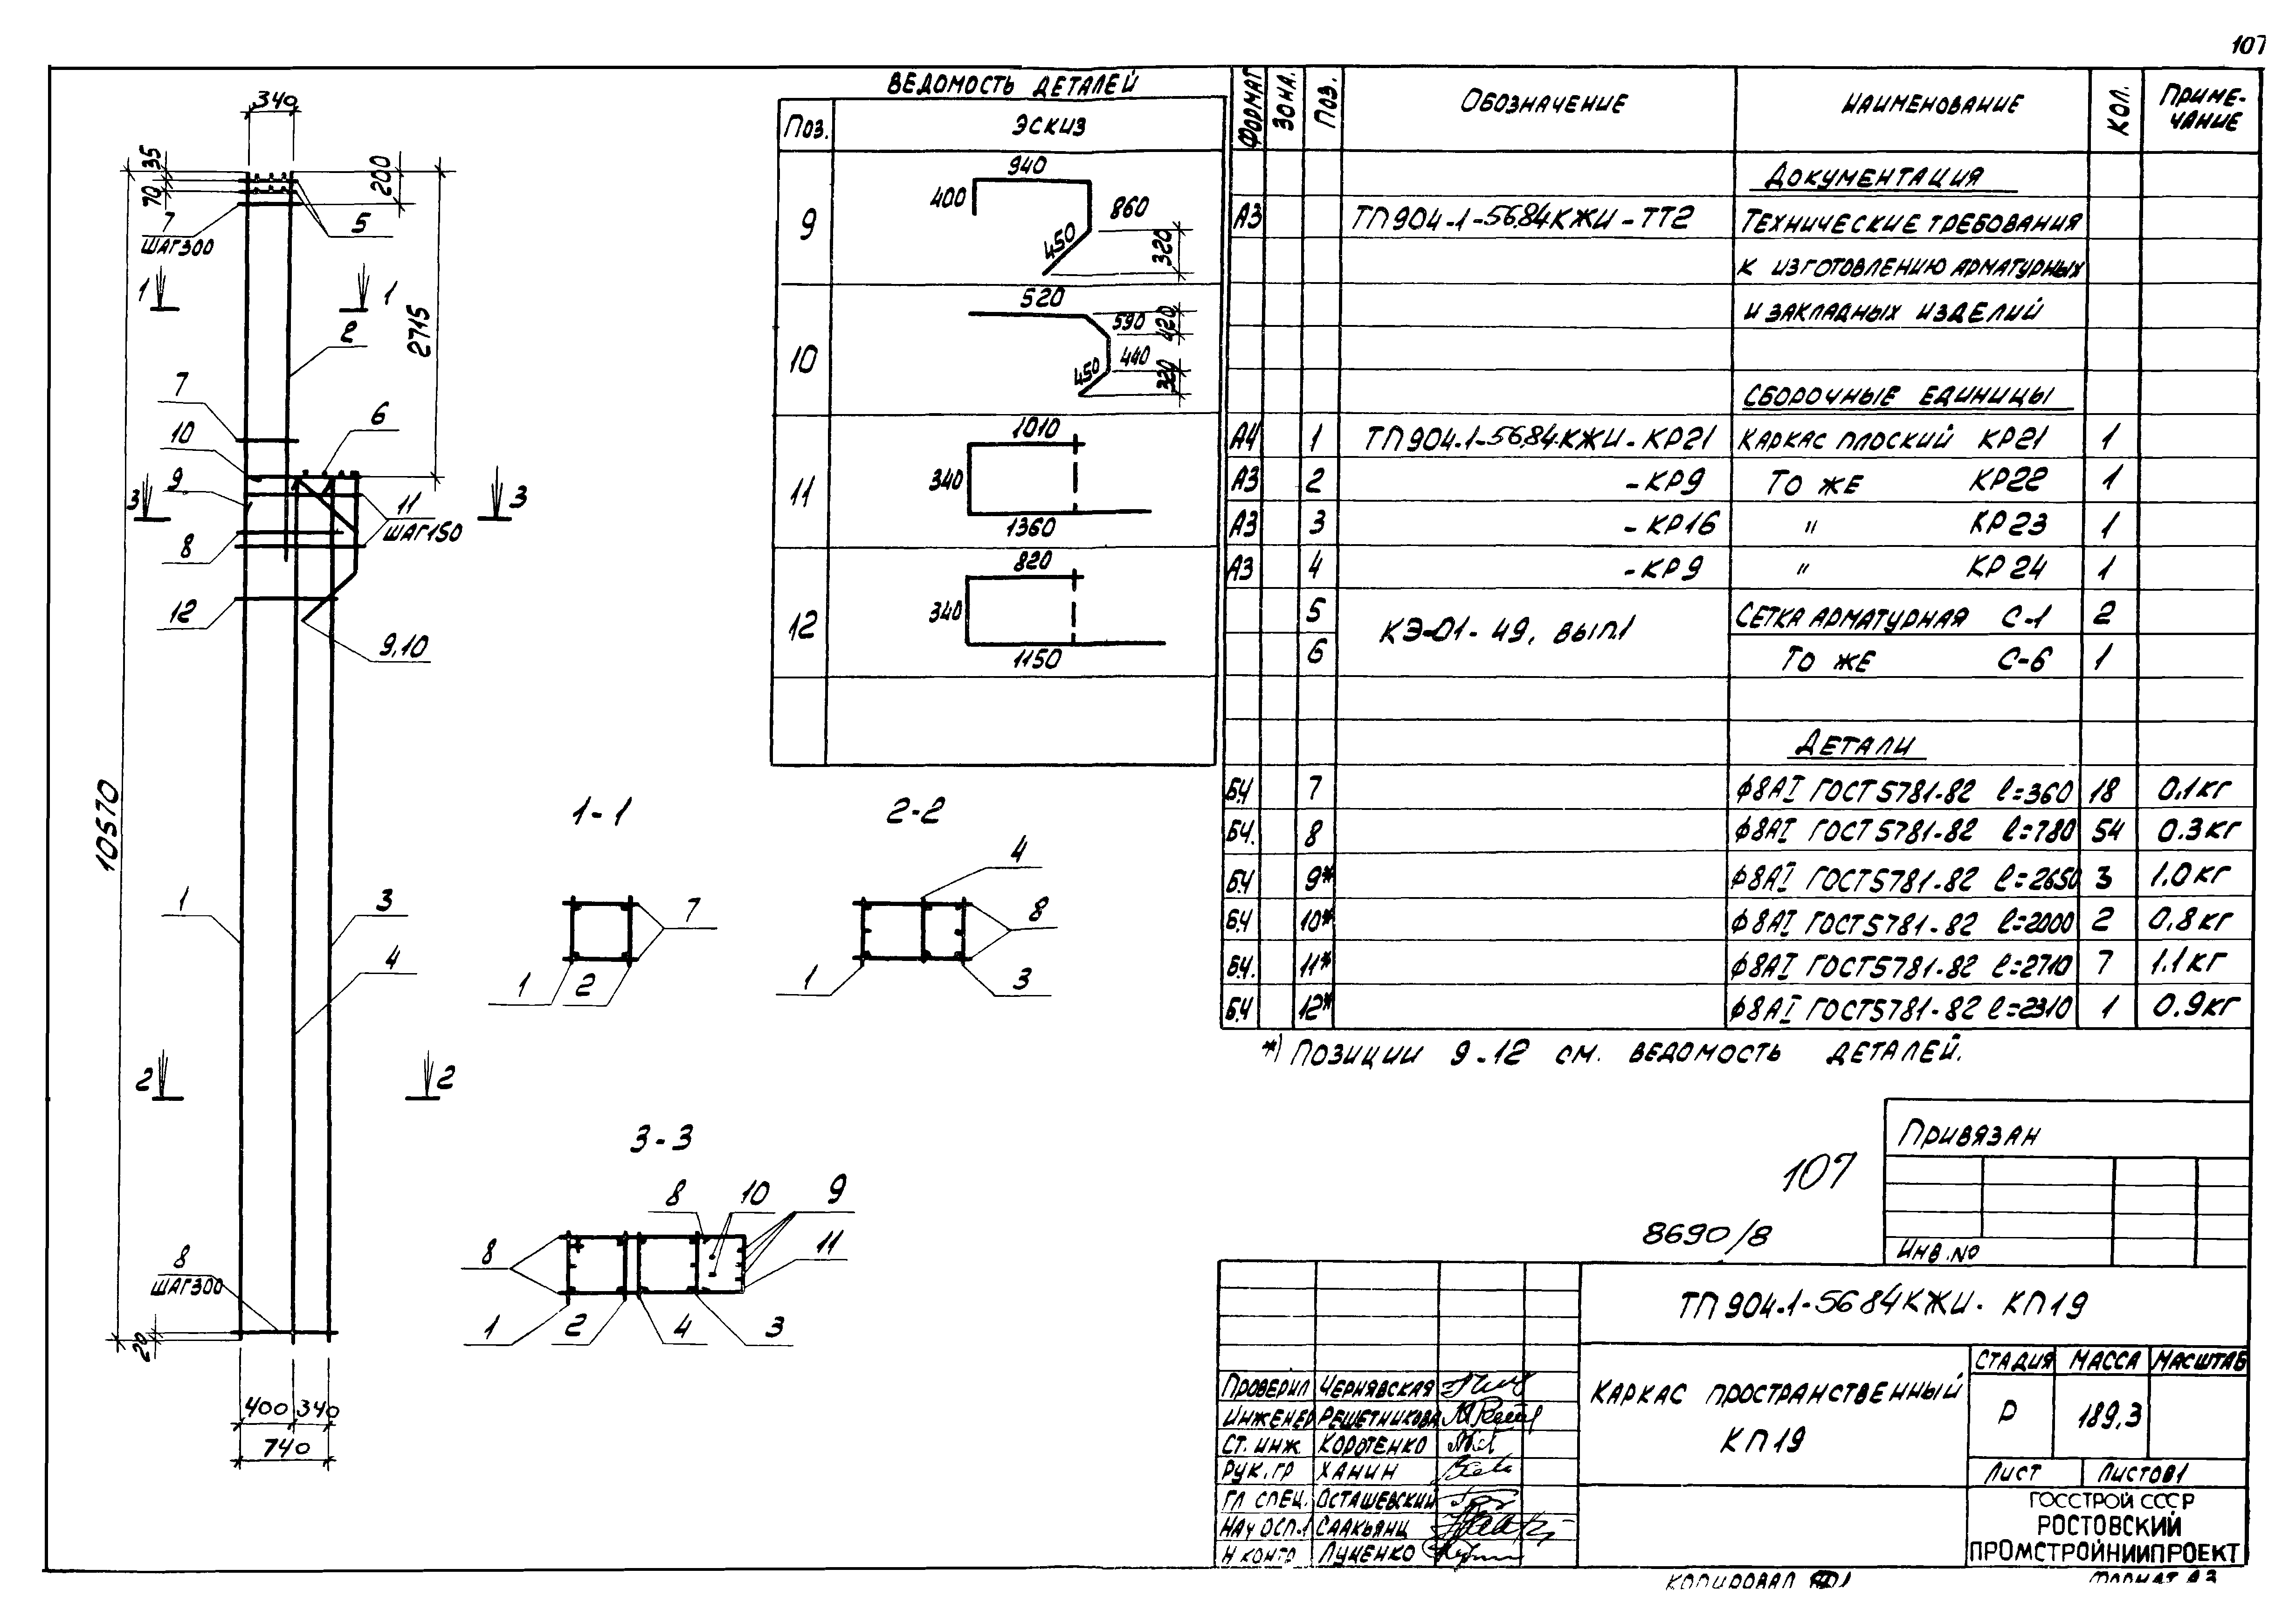 107
340
35
70
200
7
ШАГ300
5
1
1
2
2715
7
10
6
9
3
3
11
ШАГ150
8
12
9,10
10570
1
3
4
2
2
8
ШАГ300
20
400
340
740
ВЕДОМОСТЬ ДЕТАЛЕЙ
ПОЗ. ЭСКИЗ
9
940
400
860
450
320
10
520
590
420
440
450
320
11
1010
340
1360
12
820
340
1150
1-1
7
1
2
2-2
4
8
1
3
3-3
8
10
9
8
11
1
2
4
3
ФОРМАТ ЗОНА. ПОЗ. ОБОЗНАЧЕНИЕ НАИМЕНОВАНИЕ КОЛ. ПРИМЕ-
ЧАНИЕ
ДОКУМЕНТАЦИЯ
А3 ТП904-1-56.84КЖИ-ТТ2 ТЕХНИЧЕСКИЕ ТРЕБОВАНИЯ
К ИЗГОТОВЛЕНИЮ АРМАТУРНЫХ
И ЗАКЛАДНЫХ ИЗДЕЛИЙ
СБОРОЧНЫЕ ЕДИНИЦЫ
А4 1 ТП904-1-56.84.КЖИ-КР21 КАРКАС ПЛОСКИЙ КР21 1
А3 2 -КР9 ТО ЖЕ КР22 1
А3 3 -КР16 " КР23 1
А3 4 -КР9 " КР24 1
5 КЭ-01-49, ВЫП.1 СЕТКА АРМАТУРНАЯ С-1 2
6 ТО ЖЕ С-6 1
ДЕТАЛИ
Б.Ч 7 Ф8АI ГОСТ5781-82 ℓ=360 18 0.1КГ
Б.Ч. 8 Ф8АI ГОСТ5781-82 ℓ=780 54 0.3КГ
Б.Ч 9* Ф8АI ГОСТ5781-82 ℓ=2650 3 1.0КГ
Б.Ч 10* Ф8АI ГОСТ5781-82 ℓ=2000 2 0.8КГ
Б.Ч. 11* Ф8АI ГОСТ5781-82 ℓ=2710 7 1.1КГ
Б.Ч 12* Ф8АI ГОСТ5781-82 ℓ=2310 1 0.9КГ
*) ПОЗИЦИИ 9-12 СМ. ВЕДОМОСТЬ ДЕТАЛЕЙ.
ПРИВЯЗАН
107
8690/8
ИНВ.№
ТП904-1-56 84КЖИ- КП19
ПРОВЕРИЛ ЧЕРНЯВСКАЯ
ИНЖЕНЕР РЕШЕТНИКОВА
СТ. ИНЖ. КОРОТЕНКО
РУК. ГР ХАНИН
ГЛ СПЕЦ. ОСТАШЕВСКИЙ
НАЧ ОСП-1 СААКЬЯНЦ
Н КОНТР ЛУЦЕНКО
КАРКАС ПРОСТРАНСТВЕННЫЙ
КП19
СТАДИЯ МАССА МАСШТАБ
Р 189,3
ЛИСТ ЛИСТОВ1
ГОССТРОЙ СССР
РОСТОВСКИЙ
ПРОМСТРОЙНИИПРОЕКТ
КОПИРОВАЛ
ФОРМАТ А3